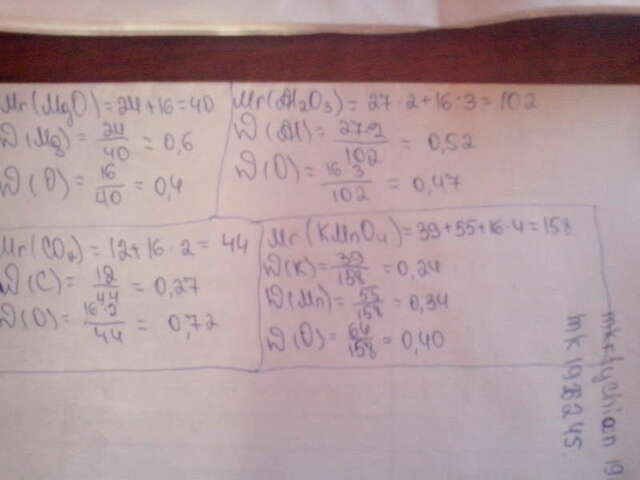 Mr(MgO)=24+16=40
W(Mg)=24/40=0,6
W(O)=16/40=0,4
Mr(Al2O3)=27·2+16·3=102
W(Al)=27·2/102=0,52
W(O)=16·3/102=0,47
Mr(CO2)=12+16·2=44
W(C)=12/44=0,27
W(O)=16·2/44=0,72
Mr(KMnO4)=39+55+16·4=158
W(K)=39/158=0,24
W(Mn)=55/158=0,34
W(O)=64/158=0,40